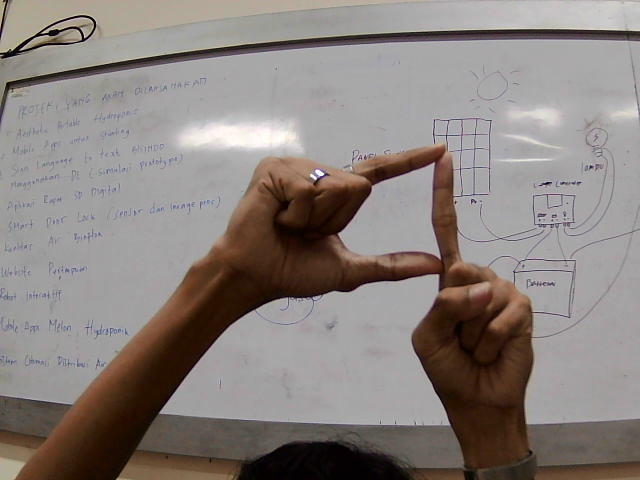 PROJEK YANG AKAN DILAKSANAKAN
Aesthetic Portable Hydroponic
Mobile Apps untuk Stunting
Sign Language to text BISINDO
Menggunakan DL (simulasi prototype)
Aplikasi Rapor SD Digital
Smart Door Lock (sensor dan image proc)
Kualitas Air
Website
Robot Interaktif
Mobile Apps Melon Hydroponik
Distribusi Air
PANEL
LAMPU
BATTERAI